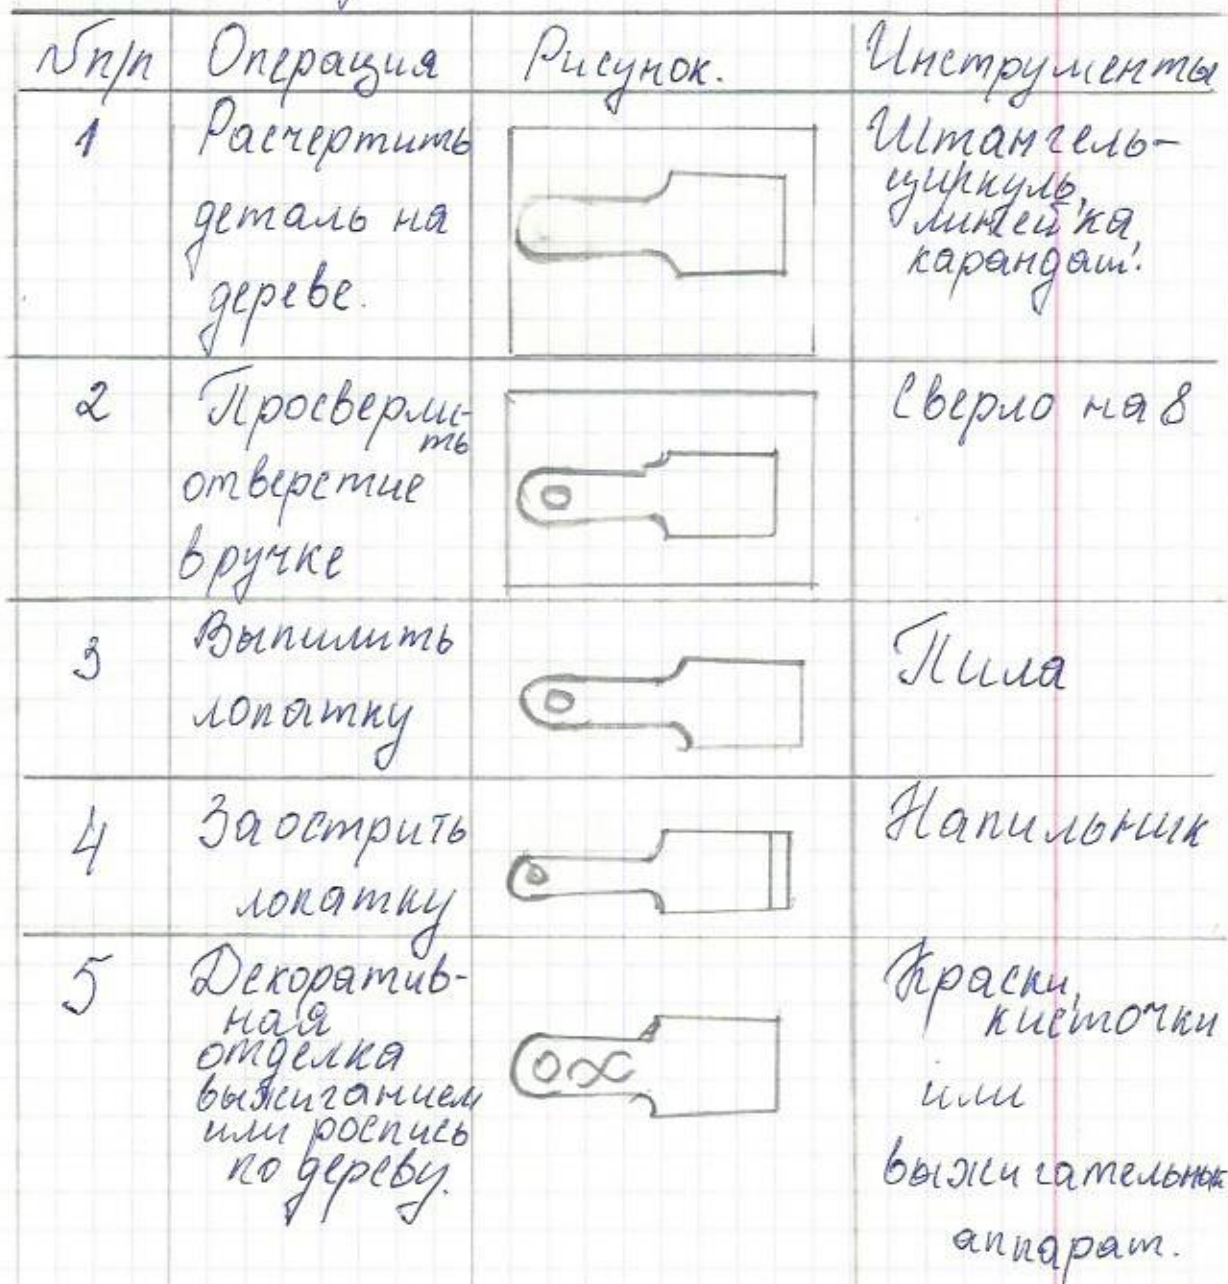 №п/п Операция Рисунок. Инструменты
1
Расчертить
деталь на
дереве.
Штангель-
циркуль,
линейка,
карандаш.
2
Просверли-
ть
отверстие
в ручке
Сверло на 8
3
Выпилить
лопатку
Пила
4
Заострить
лопатку
Напильник
5
Декоратив-
ная
отделка
выжиганием
или роспись
по дереву.
Краски,
кисточки
или
выжигательный
аппарат.